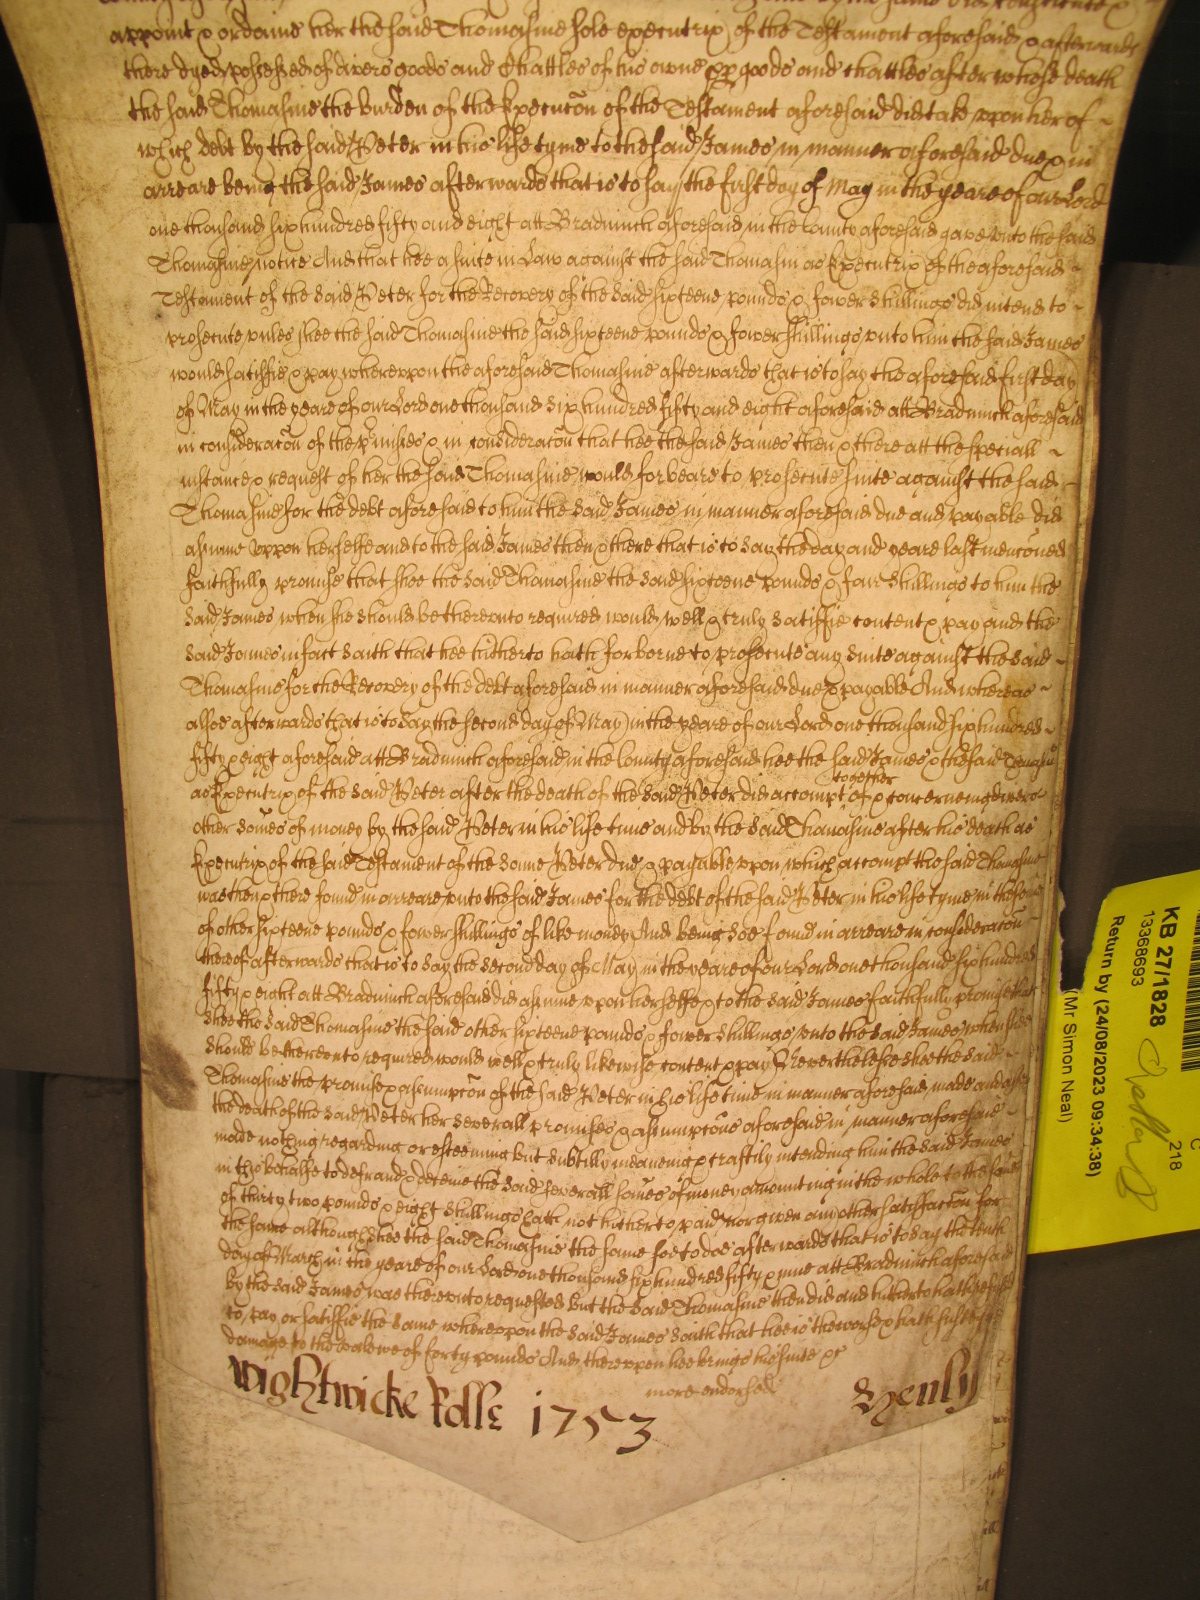 appoint & ordaine her the said Thomasine sole executrix of the Testament aforesaid & afterwards
there dyed possessed of divers goods and Chattles of his owne pp goods and chattles after whose death
the said Thomasine the burden of the Execucõn of the Testament aforesaid did take upon her of
which debt by the said Peter in his life tyme to the said James in manner aforesaid due & in
arreare being the said James afterwards that is to say the first day of May in the yeare of our Lord
one thousand six hundred fifty and eight att Bradninch aforesaid in the County aforesaid gave unto the said
Thomasine notice And that hee a suite in Law against the said Thomasin as Executrix of the aforesaid
Testament of the said Peter for the Recovery of the said sixteene pounds & fower shillings did intend to
prosecute unles shee the said Thomasine the said sixteene pounds & fower shillings unto him the said James
would satisfie & pay whereupon the aforesaid Thomasine afterwards that is to say the aforesaid first day
of May in the yeare of our Lord one thousand six hundred fifty and eight aforesaid att Bradninch aforesaid
in consideracõn of the p'mises & in consideracõn that hee the said James then & there att the speciall
instance & request of her the said Thomasine would forbeare to prosecute suite against the said
Thomasine for the debt aforesaid to him the said James in manner aforesaid due and payable did
assume uppon herselfe and to the said James then & there that is to say the day and yeare last mencõned
faithfully promise that shee the said Thomasine the said sixteene pounds & four shillings to him the
said James when she should be thereunto required would well & truly satisfie content & pay and the
said James in fact saith that hee hitherto hath forborne to prosecute any suite against the said
Thomasine for the Recovery of the debt aforesaid in manner aforesaid due & payable And whereas
alsoe afterwards that is to say the second day of May in the yeare of our Lord one thousand six hundred
fifty & eight aforesaid att Bradninch aforesaid in the County aforesaid hee the said James & the said Thomasine
as Executrix of the said Peter after the death of the said Peter did accompt together of & concerneing divers
other somes of money by the said Peter in his life time and by the said Thomasine after his death as
Executrix of the said Testament of the same Peter due & payable upon which accompt the said Thomasine
was then & there found in arreare unto the said James for the debt of the said Peter in his life tyme in the some
of other sixteene pounds & fower shillings of like money And being soe found in arreare in consideracõn
thereof afterwards that is to say the second day of May in the yeare of our Lord one thousand six hundred
fifty & eight att Bradninch aforesaid did assume upon herselfe & to the said James faithfully promise that
shee the said Thomasine the said other sixteene pounds & fower shillings unto the said James when shee
should be thereunto required would well & truly likewise content & pay Neverthelesse shee the said
Thomasine the promise & assumpcõn of the said Peter in his life time in manner aforesaid made and after
the death of the said Peter her severall promises & assumpcõns aforesaid in manner aforesaid
made nothing regarding or esteeming but subtilly meaneing & craftily intending him the said James
in this behalfe to defraud & deceive the said severall somes of money amounting in the whole to the some
of thirty two pounds & eight shillings hath not hitherto paid nor given any other satisfaccõn for
the same although shee the said Thomasine the same soe to doe afterwards that is to say the tenth
day of March in the yeare of our Lord one thousand six hundred fifty & nine att Bradninch aforesaid
by the said James was thereunto requested but the said Thomasine then did and hitherto hath refused
to pay or satisfie the same whereupon the said James saith that hee is the worse & hath susteyned
damage to the valewe of forty pounds And thereupon hee brings his suite &c
more endorsed
Wightwicke Rolle 1753 Henly
KB 27/1828
13368693
218
Return by (24/08/2023 09:34:38)
(Mr Simon Neal)